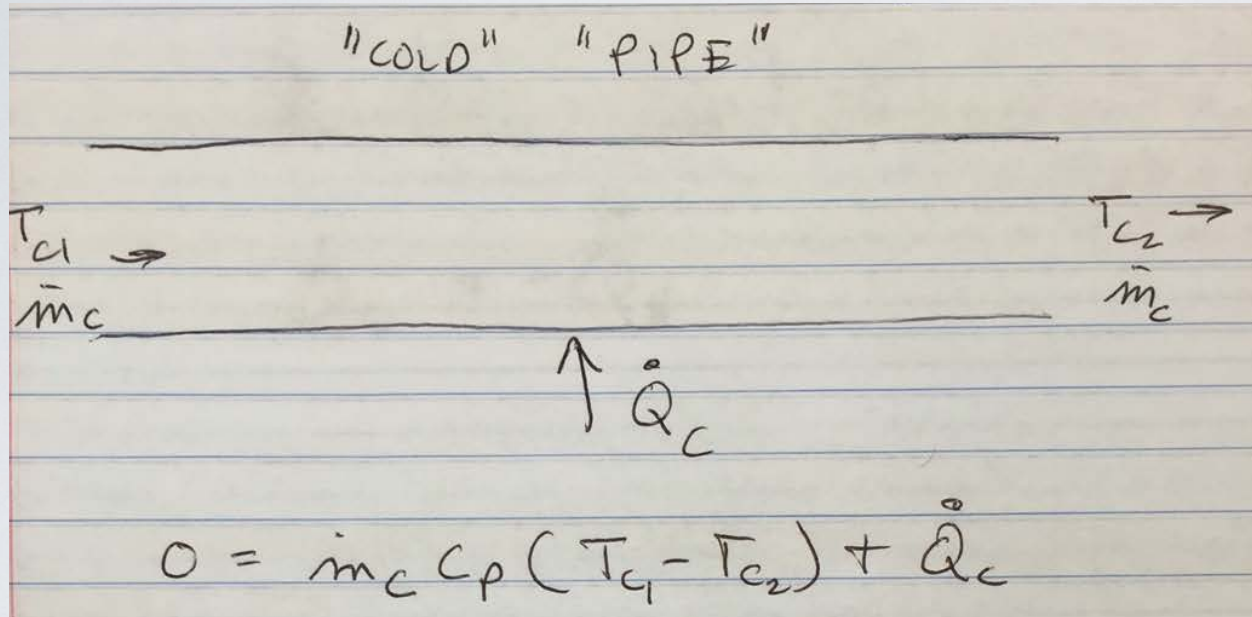 "COLD" "PIPE"
T_{C1} → T_{C2} →
ṁ_C ṁ_C
↑ Q̇_C
0 = ṁ_C C_P (T_{C1} - T_{C2}) + Q̇_C